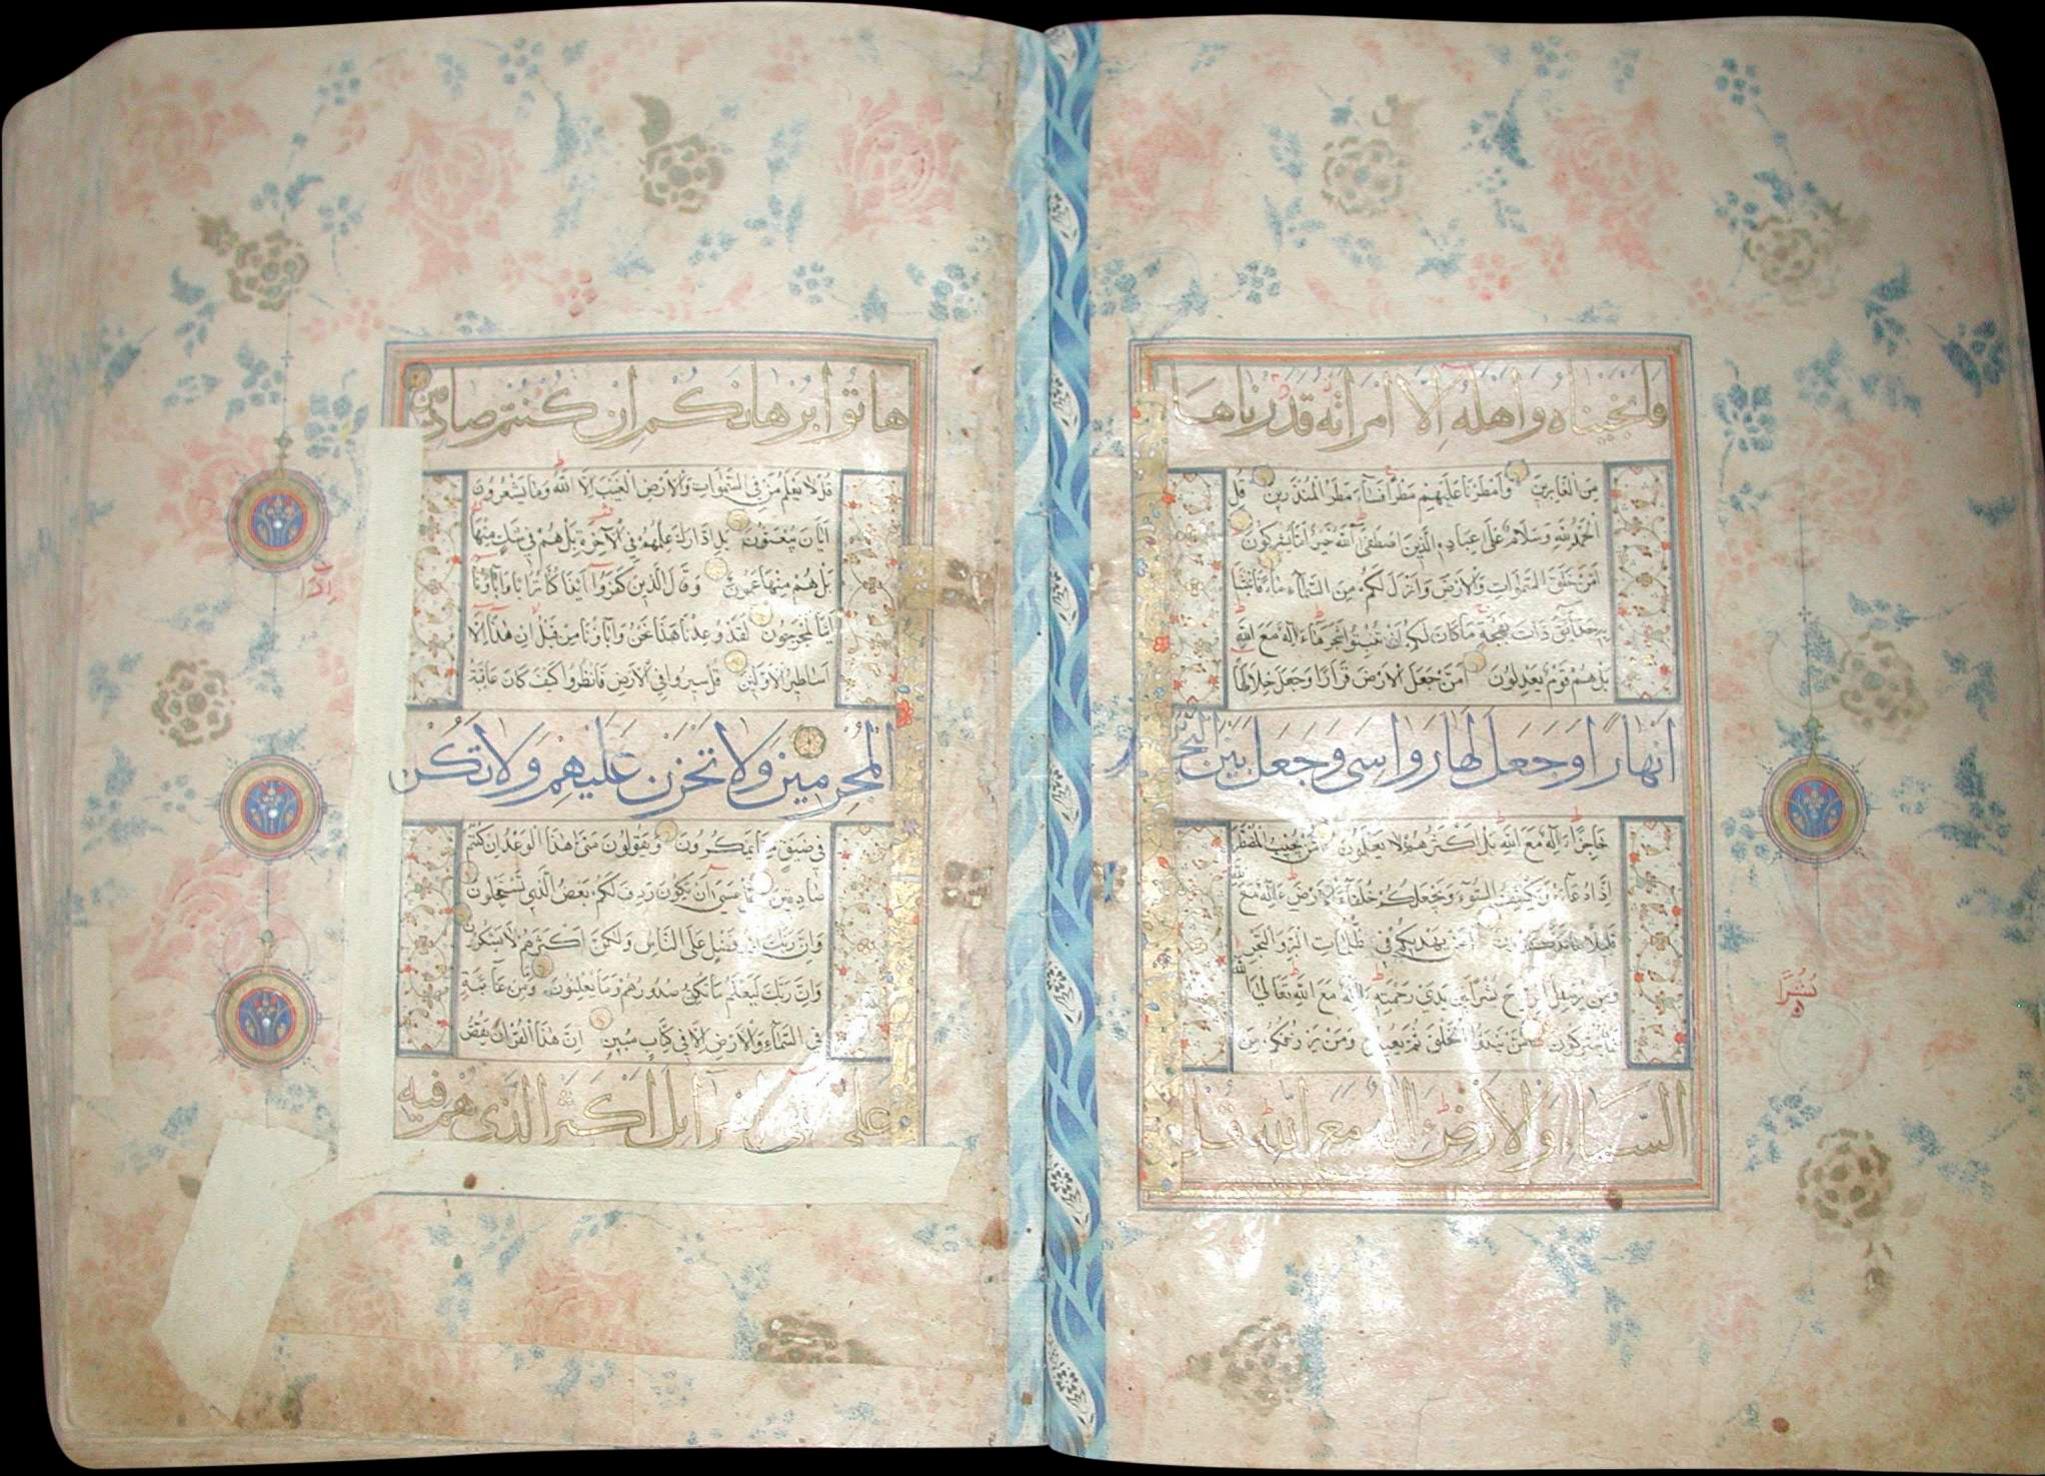 فانجيناه واهله الا امراته قدرناها
مِنَ الْغَابِرِينَ وَاَمْطَرْنَا عَلَيْهِمْ مَطَرًا فَسَاءَ مَطَرُ الْمُنْذَرِينَ قُلِ
الْحَمْدُ لِلّٰهِ وَسَلَامٌ عَلَى عِبَادِهِ الَّذِينَ اصْطَفَى آللّٰهُ خَيْرٌ اَمَّا يُشْرِكُونَ
اَمَّنْ خَلَقَ السَّمٰوَاتِ وَالْاَرْضَ وَاَنْزَلَ لَكُمْ مِنَ السَّمَاءِ مَاءً فَاَنْبَتْنَا
بِهِ حَدَائِقَ ذَاتَ بَهْجَةٍ مَا كَانَ لَكُمْ اَنْ تُنْبِتُوا شَجَرَهَا ءَاِلٰهٌ مَعَ اللّٰهِ
بَلْ هُمْ قَوْمٌ يَعْدِلُونَ اَمَّنْ جَعَلَ الْاَرْضَ قَرَارًا وَجَعَلَ خِلَالَهَا
اَنْهَارًا وَجَعَلَ لَهَا رَوَاسِيَ وَجَعَلَ بَيْنَ الْبَحْرَ
حَاجِزًا ءَاِلٰهٌ مَعَ اللّٰهِ بَلْ اَكْثَرُهُمْ لَا يَعْلَمُونَ اَمَّنْ يُجِيبُ الْمُضْطَرَّ
اِذَا دَعَاهُ وَيَكْشِفُ السُّوءَ وَيَجْعَلُكُمْ خُلَفَاءَ الْاَرْضِ ءَاِلٰهٌ مَعَ اللّٰهِ
قَلِيلًا مَا تَذَكَّرُونَ اَمَّنْ يَهْدِيكُمْ فِي ظُلُمَاتِ الْبَرِّ وَالْبَحْرِ
وَمَنْ يُرْسِلُ الرِّيَاحَ بُشْرًا بَيْنَ يَدَيْ رَحْمَتِهِ ءَاِلٰهٌ مَعَ اللّٰهِ تَعَالَى اللّٰهُ
عَمَّا يُشْرِكُونَ اَمَّنْ يَبْدَؤُا الْخَلْقَ ثُمَّ يُعِيدُهُ وَمَنْ يَرْزُقُكُمْ مِنَ
السَّمَاءِ وَالْاَرْضِ ءَاِلٰهٌ مَعَ اللّٰهِ قُلْ
نُشُرًا
هاتوا برهانكم ان كنتم صادقين
قُلْ لَا يَعْلَمُ مَنْ فِي السَّمٰوَاتِ وَالْاَرْضِ الْغَيْبَ اِلَّا اللّٰهُ وَمَا يَشْعُرُونَ
اَيَّانَ يُبْعَثُونَ بَلِ ادَّارَكَ عِلْمُهُمْ فِي الْآخِرَةِ بَلْ هُمْ فِي شَكٍّ مِنْهَا
بَلْ هُمْ مِنْهَا عَمُونَ وَقَالَ الَّذِينَ كَفَرُوا اَئِذَا كُنَّا تُرَابًا وَآبَاؤُنَا
اَئِنَّا لَمُخْرَجُونَ لَقَدْ وُعِدْنَا هٰذَا نَحْنُ وَآبَاؤُنَا مِنْ قَبْلُ اِنْ هٰذَا اِلَّا
اَسَاطِيرُ الْاَوَّلِينَ قُلْ سِيرُوا فِي الْاَرْضِ فَانْظُرُوا كَيْفَ كَانَ عَاقِبَةُ
الْمُجْرِمِينَ وَلَا تَحْزَنْ عَلَيْهِمْ وَلَا تَكُنْ
فِي ضَيْقٍ مِمَّا يَمْكُرُونَ وَيَقُولُونَ مَتَى هٰذَا الْوَعْدُ اِنْ كُنْتُمْ
صَادِقِينَ قُلْ عَسَى اَنْ يَكُونَ رَدِفَ لَكُمْ بَعْضُ الَّذِي تَسْتَعْجِلُونَ
وَاِنَّ رَبَّكَ لَذُو فَضْلٍ عَلَى النَّاسِ وَلٰكِنَّ اَكْثَرَهُمْ لَا يَشْكُرُونَ
وَاِنَّ رَبَّكَ لَيَعْلَمُ مَا تُكِنُّ صُدُورُهُمْ وَمَا يُعْلِنُونَ وَمَا مِنْ غَائِبَةٍ
فِي السَّمَاءِ وَالْاَرْضِ اِلَّا فِي كِتَابٍ مُبِينٍ اِنَّ هٰذَا الْقُرْاٰنَ يَقُصُّ
عَلَى بَنِي اِسْرَائِلَ اَكْثَرَ الَّذِي هُمْ فِيهِ